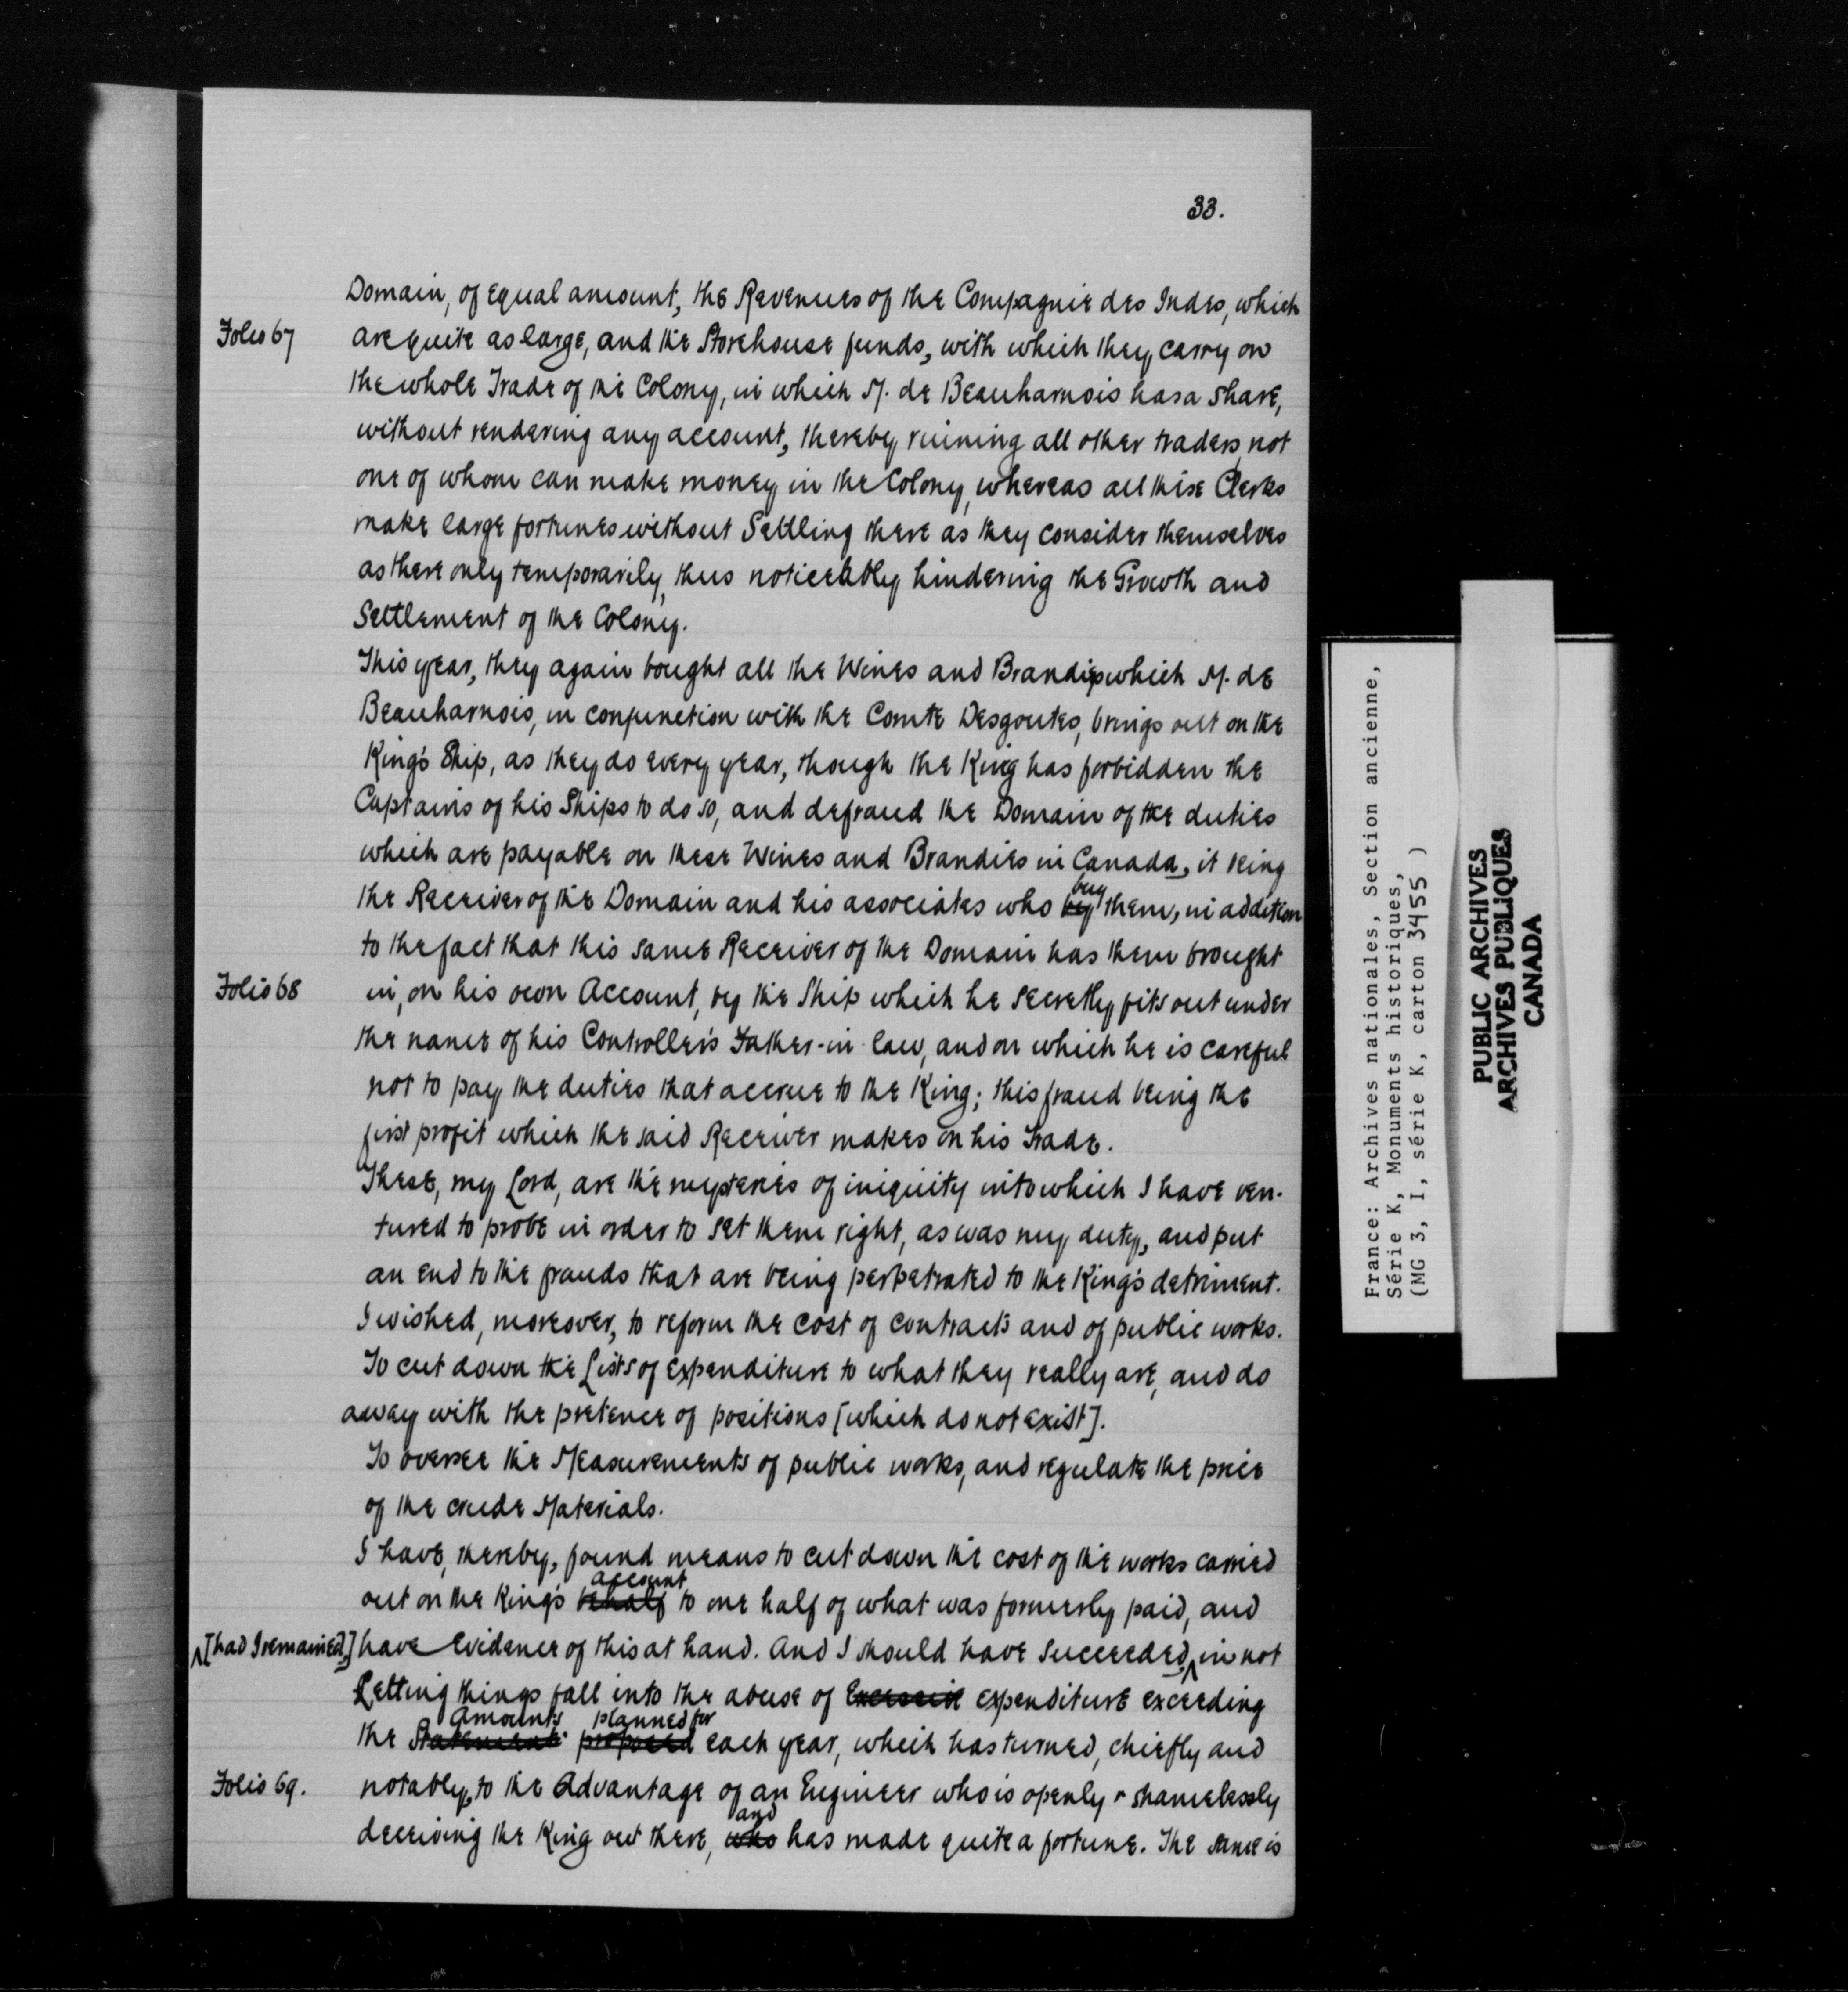 33.
Domain, of equal amount, the Revenues of the Compagnie des Indes, which
Folio 67
are quite as large, and the Storehouse funds, with which they carry on
the whole Trade of the Colony, in which M. de Beauharnois has a share,
without rendering any account, thereby ruining all other traders, not
one of whom can make money in the Colony, whereas all these Clerks
make large fortunes without Settling there as they consider themselves
as there only temporarily, thus noticeably hindering the Growth and
Settlement of the Colony.
This year, they again bought all the Wines and Brandies which M. de
Beauharnois, in conjunction with the Comte Desgoutes, brings out on the
King's Ship, as they do every year, though the King has forbidden the
Captains of his Ships to do so, and defraud the Domain of the duties
which are payable on these Wines and Brandies in Canada, it being
the Receiver of the Domain and his associates who buy them, in addition
to the fact that this same Receiver of the Domain has them brought
Folio 68
in, on his own Account, by the Ship which he secretly fits out under
the name of his Controller's Father-in-law, and on which he is careful
not to pay the duties that accrue to the King; this fraud being the
first profit which the said Receiver makes on his Trade.
These, my Lord, are the mysteries of iniquity into which I have ven-
tured to probe in order to set them right, as was my duty, and put
an end to the frauds that are being perpetrated to the King's detriment.
I wished, moreover, to reform the cost of contracts and of public works.
To cut down the Lists of expenditure to what they really are, and do
away with the pretence of positions [which do not exist].
To oversee the Measurements of public works, and regulate the price
of the crude Materials.
I have, thereby, found means to cut down the cost of the works carried
account
out on the King's behalf to one half of what was formerly paid, and
[had I remained,]
have evidence of this at hand. And I should have succeeded, in not
Letting things fall into the abuse of Excessive expenditure exceeding
Amounts planned for
the Statements proposed each year, which has turned, chiefly and
Folio 69.
notably, to the Advantage of an Engineer who is openly & shamelessly
and
deceiving the King out there, who has made quite a fortune. The same is
France: Archives nationales, Section ancienne,
Série K, Monuments historiques,
(MG 3, I, série K, carton 3455 )
PUBLIC ARCHIVES
ARCHIVES PUBLIQUES
CANADA